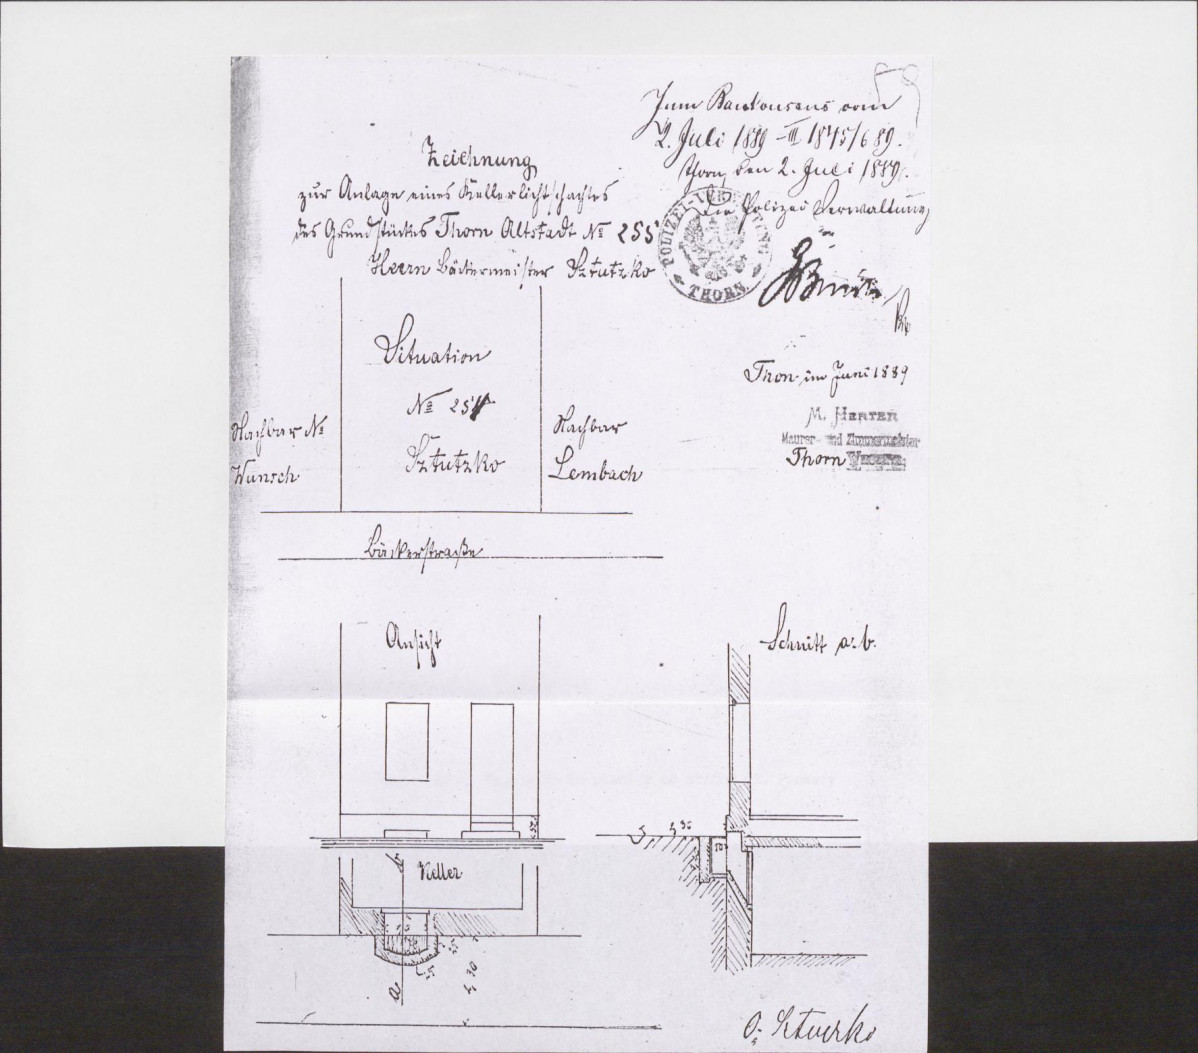 Zum Baukonsens vom
2. Juli 1889 – III 1845/6 89.
Thorn, den 2. Juli 1889.
Die Polizei Verwaltung
POLIZEI-VERWALTUNG
THORN
Zeichnung
zur Anlage eines Kellerlichtschachtes
des Grundstückes Thorn Altstadt No 255
Herrn Bäckermeister Sztutzko
Situation
No 255
Sztutzko
Nachbar No
Wunsch
Nachbar
Lembach
Bäckerstraße
Thorn im Juni 1889
M. Herter
Maurer- und Zimmermeister
Thorn
Ansicht
Schnitt a. b.
Keller
a